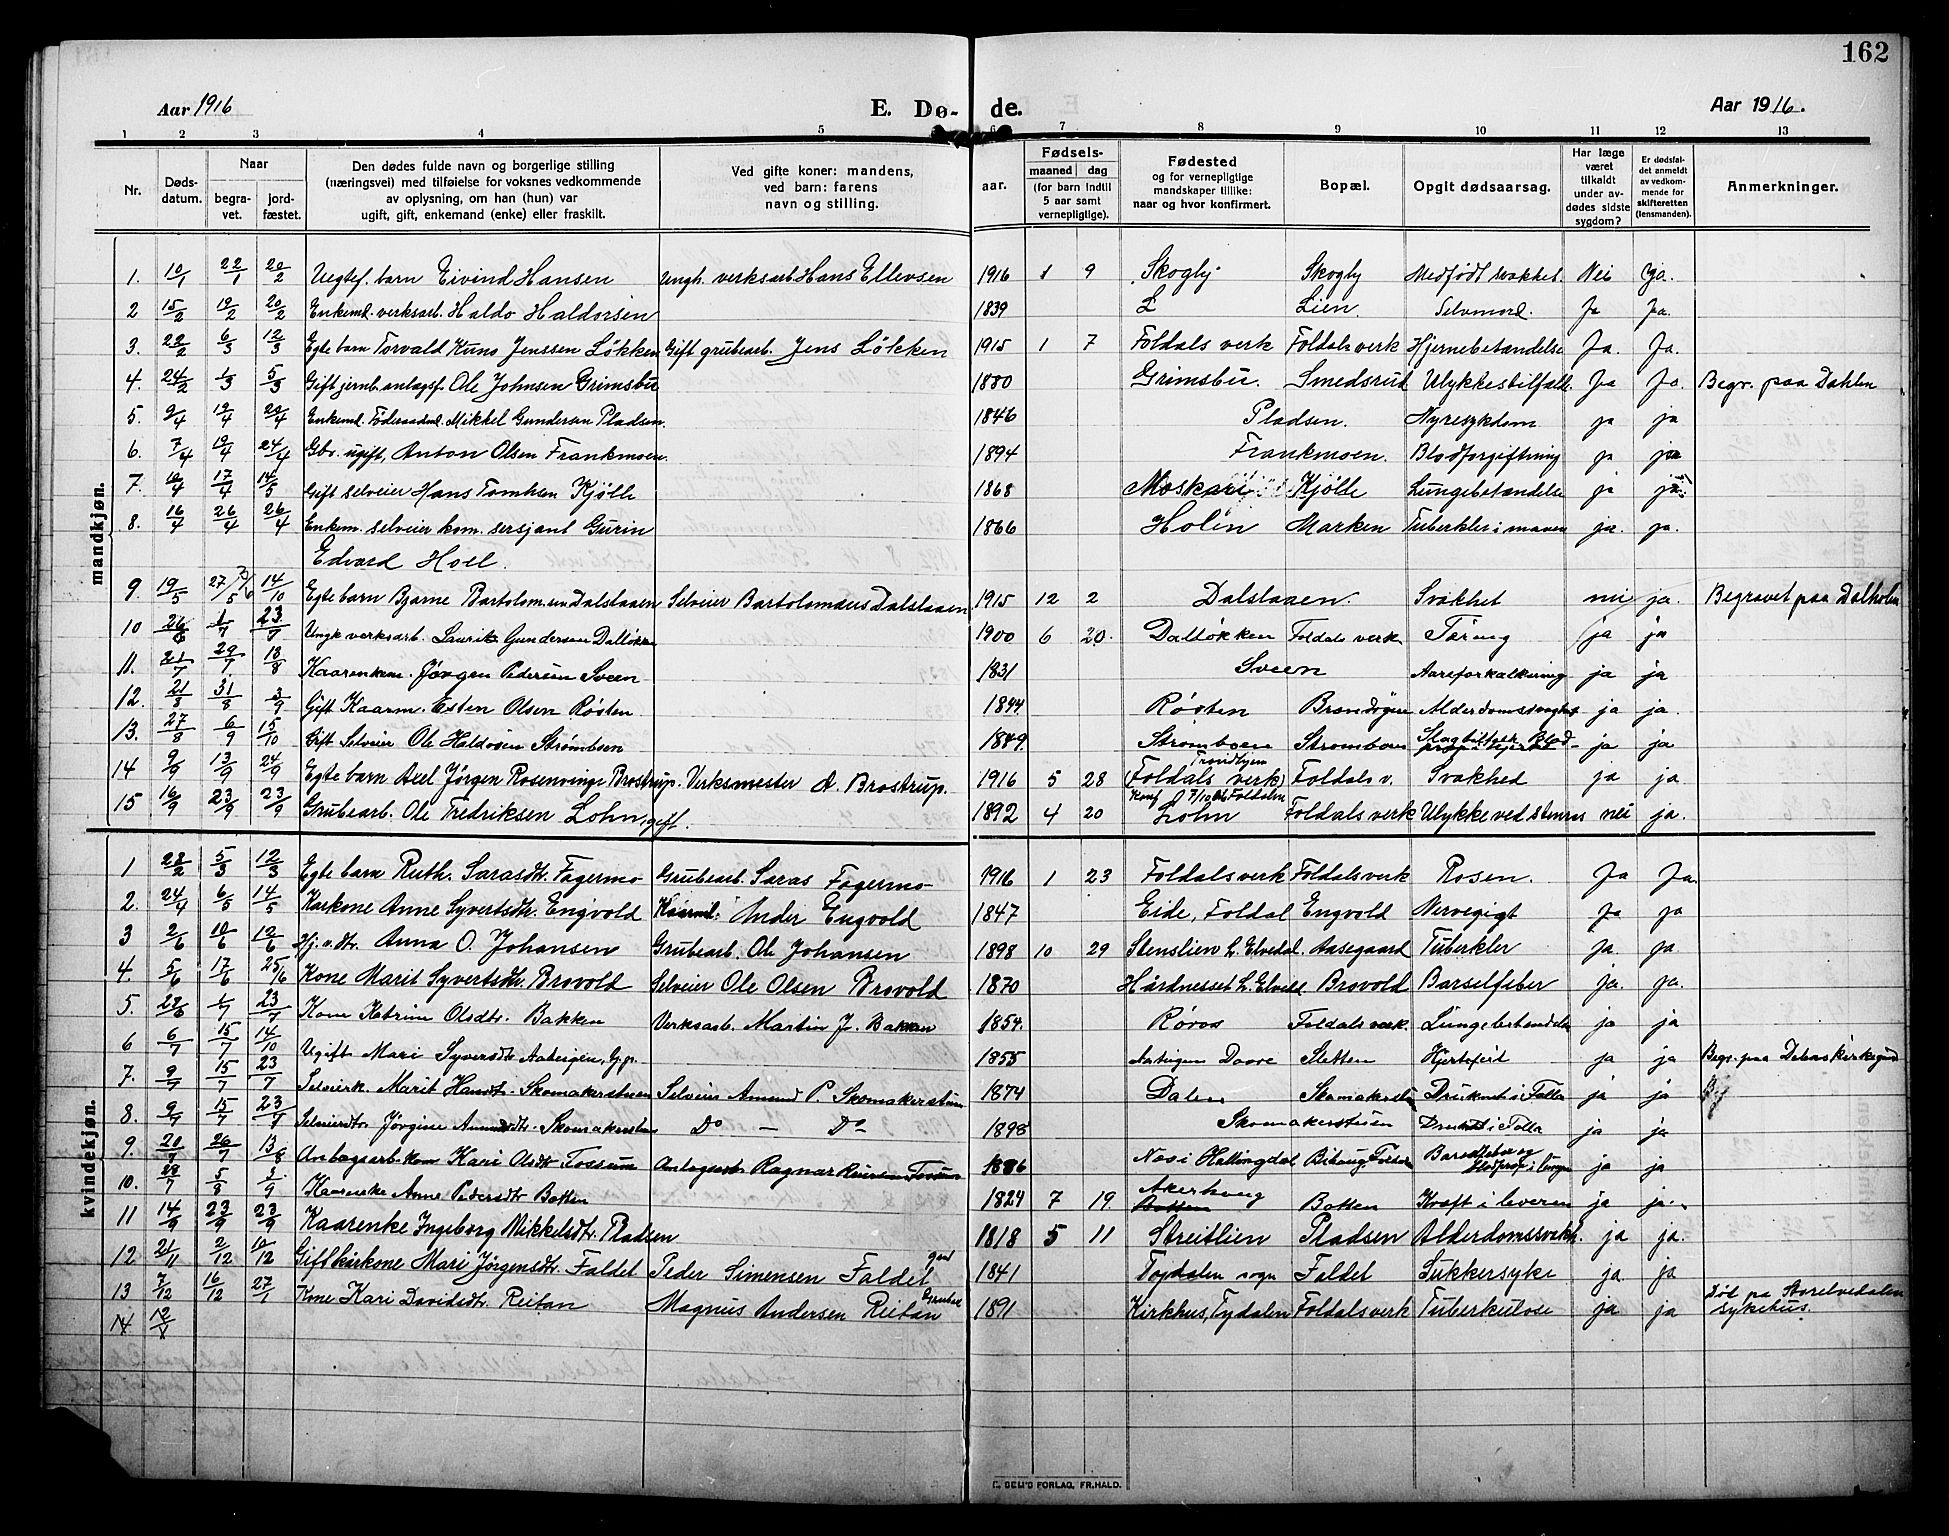 162
Aar 1916 E. Dø- de. Aar 1916.
1 2 3 4 5 6 7 8 9 10 11 12 13
Nr. Døds-datum. Naar begra-vet. jord-fæstet. Den dødes fulde navn og borgerlige stilling (næringsvei) med tilføielse for voksnes vedkommende av oplysning, om han (hun) var ugift, gift, enkemand (enke) eller fraskilt. Ved gifte koner: mandens, ved barn: farens navn og stilling. aar. Fødsels- maaned dag (for barn indtil 5 aar samt vernepligtige). Fødested og for vernepligtige mandskaper tillike: naar og hvor konfirmert. Bopæl. Opgit dødsaarsag. Har læge været tilkaldt under av-dødes sidste sygdom? Er dødsfal-det anmeldt av vedkom-mende for skifteretten (lensmanden). Anmerkninger.
mandkjøn.
1. 10/1 22/1 20/2 Uegtef. barn Eivind Hansen Ungk. verksarb. Hans Ellevsen 1916 1 9 Skogly Skogly Medfødt svakhet. Nei Ja.
2 15/2 19/2 20/2 Enkemd. verksarb. Haldo Haldorsen 1839 L Lien. Selvmord. Ja Ja.
3. 22/2 6/3 12/3 Egte barn Torvald Kuno Jenssen Løkken Gift grubearb. Jens Løkken 1915 1 7 Foldals verk Foldals verk Hjernebetændelse Ja. Ja.
4. 24/2 1/3 5/3 Gift jernb. anlægsf. Ole Johnsen Grimsbu 1880 Grimsbu. Smedsrud Ulykkestilfælde Ja Ja. Begr. paa Dahlen
5. 9/4 19/4 20/4 Enkemd. Føderaadmd. Mikkel Gundersen Pladsen. 1846 Pladsen. Nyresykdom ja ja
6. 7/4 19/4 24/4 Gbr. ugift, Anton Olsen Frankmoen. 1894 Frankmoen. Blodforgiftning ja ja
7. 10/4 17/4 14/5 Gift selveier Hans Tomksen Kjølle 1868 Moskari Kjølle Lungebetændelse ja ja
8. 16/4 26/4 26/4 Enkem. selveier kom. sersjant Gurin 1866 Holen Marken Tuberkler i maven ja. ja.
Edvard Holl.
9. 19/5 27/5 14/10 Egte barn Bjarne Bartolom.sen Dalslaaen Selveier Bartolomæus Dalslaaen 1915 12 2 Dalslaaen. Svakhet nei ja. Begravet paa Dalholen
10 26/6 1/7 23/7 Ungk. verksarb. Laurits Gundersen Dalløkken 1900 6 20. Dalløkken Foldals verk Tæring ja ja
11. 21/7 29/7 13/8 Kaarenkem. Jørgen Pedersen Sveen 1831 Sveen Aareforkalkning ja ja
12. 21/8 31/8 3/9 Gift Kaarm. Esten Olsen Røsten 1844 Røsten Alderdomssvaghet ja ja.
13. 27/8 6/9 15/10 Gift Selveier Ole Haldosen Strømboen 1849. Strømboen Strømboen ja ja
14 9/9 13/9 24/9 Egte barn Axel Jørgen Rosenvinge Brostrup. Verksmester A. Brostrup. 1916 5 28 (Foldals verk) Foldals v. Svakhed ja ja
15 16/9 23/9 23/9 Grubearb. Ole Fredriksen Lohn, gift. 1892 4 20 Lohn Foldals verk Ulykke ved stenras nei ja.
kvindekjøn.
1 28/2 5/3 12/3 Egte barn Ruth. Sarasdtr. Fagermo Grubearb. Saras Fagermo 1916 1 23 Foldalsverk Foldalsverk Rosen. Ja Ja.
2. 24/4 6/5 14/5 Karkone Anne Syvertsdtr. Engvold Kaarmd. Ander Engvold 1847 Eide, Foldal Engvold Nervegigt Ja ja
3 2/6 10/6 12/6 Hj.v. dtr. Anna O. Johansen Grubearb. Ole Johansen 1898 10 29 Stenslien L. Elvedal Aasegaard Tuberkler ja. ja
4. 5/6 17/6 25/6 Kone Marit Syvertsdtr. Brovold Selveier Ole Olsen Brovold 1870 Hårdnesset L. Elvedal Brovold Barselfeber ja. ja.
5. 22/6 1/7 23/7 Kone Katrine Olsdtr. Bakken Verksarb. Martin J. Bakken 1854. Røros Foldals verk. Lungebetændelse ja ja
6 6/7 15/7 14/10 Ugift Mari Syversdtr 1855 Dovre Sletten Hjertefeil ja ja
7. 9/7 15/7 23/7 Selveierk. Marit Hansdtr. Skomakerstuen Selveier Amund P. Skomakerstuen 1874 Dalen Skomakerstu Druknet i Folla ja ja
8. 9/7 15/7 23/7 Selveierdtr Jørgine Amundsdtr. Skomakerstuen Do — Do 1898 Skomakerstuen Druknet i Folla ja ja
9. 20/7 26/7 13/8 Anlægsarb. kone Kari Olsdtr. Fossum Anlægsarb. Ragnar Fossum 1886 Nes i Hallingdal ja ja
10. 29/7 5/8 3/9 Kaarenke Anne Pedersdtr Botten 1824 7 19. Akerhaug Botten Botten Kræft i leveren ja ja.
11 14/9 23/9 23/9 Kaarenke Ingeborg Mikkelsdtr. Pladsen 1818 5 11 Streitlien Pladsen Alderdomssvakh. ja ja.
12 21/11 2/12 10/12 Gift Kårkone Mari Jørgensdtr. Faldet Peder Simensen Faldet 1841 Faldet Sukkersyke ja. ja
13 7/12 16/12 27/1 Kone Kari Davidsdtr. Reitan Magnus Andersen Reitan 1891 Kirkhus, Tydalen Foldalsverk Tuberkulose ja ja Død på Storelvedalen sykehus.
14
FORLAG, FR.HALD.